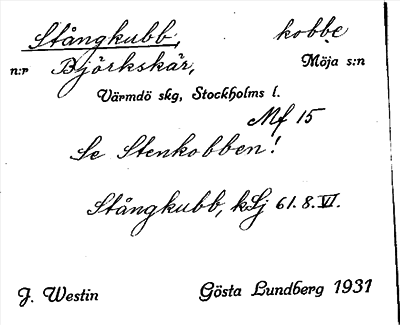 Stångkubb, kobbe
n:r Björkskär, Möja s:n
Värmdö skg, Stockholms l.
Mf 15
Se Stenkobben!
Stångkubb, kSj 61.8.VI.
J. Westin Gösta Lundberg 1931